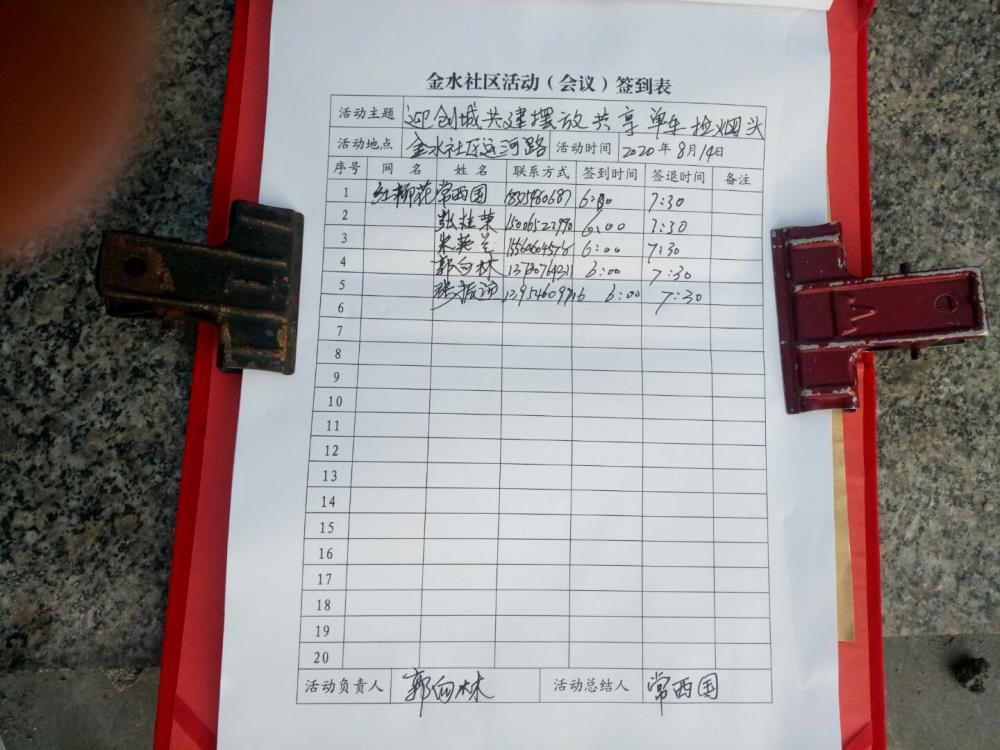 金水社区活动（会议）签到表
活动主题 迎创城共建摆放共享单车捡烟头
活动地点 金水社区运河路 活动时间 2020年8月14日
序号 网名 姓名 联系方式 签到时间 签退时间 备注
1 红柳花 常西国 6:00 7:30
2 张桂荣 6:00 7:30
3 6:00 7:30
4 郭向林 6:00 7:30
5 6:00 7:30
6
7
8
9
10
11
12
13
14
15
16
17
18
19
20
活动负责人 郭向林 活动总结人 常西国